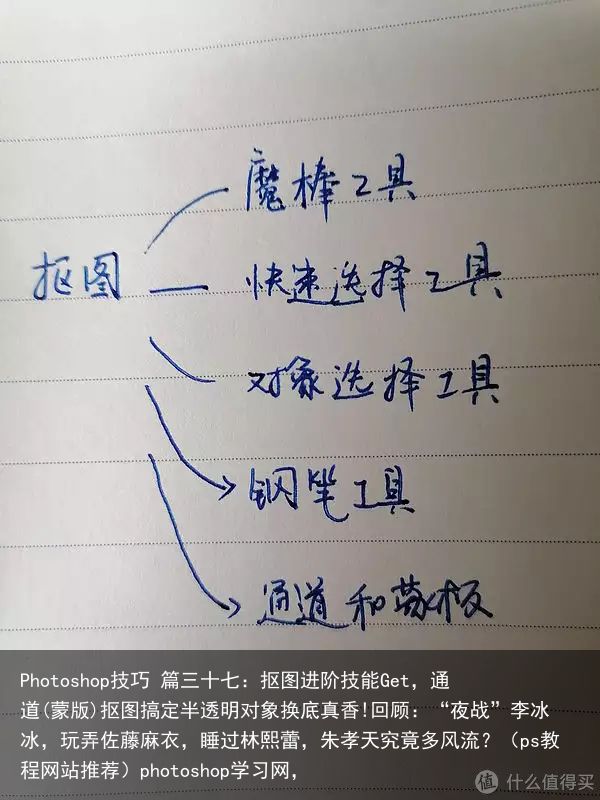 魔棒工具
抠图
快速选择工具
对象选择工具
钢笔工具
通道和蒙板
Photoshop技巧 篇三十七：抠图进阶技能Get，通
道(蒙版)抠图搞定半透明对象换底真香!回顾：“夜战”李冰
冰，玩弄佐藤麻衣，睡过林熙蕾，朱孝天究竟多风流？（ps教
程网站推荐）photoshop学习网，
值 什么值得买